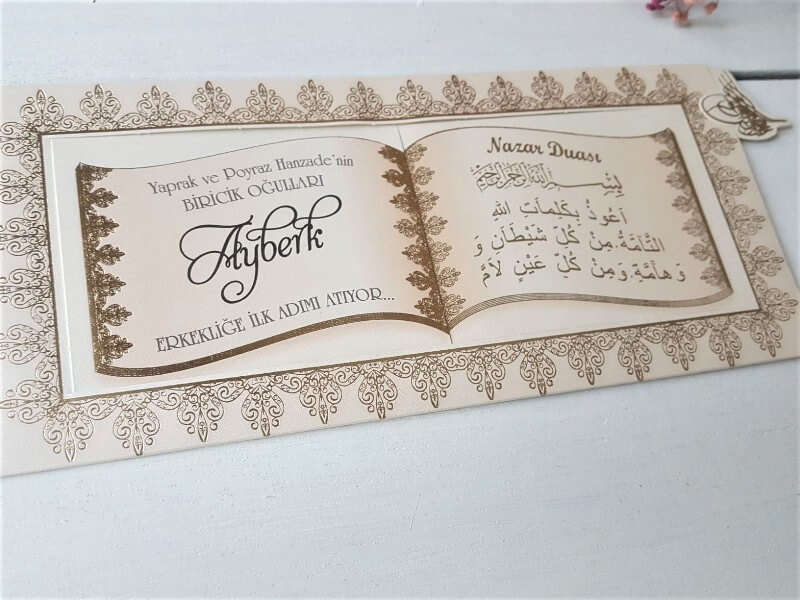 Yaprak ve Poyraz Hanzade'nin
BİRİCİK OĞULLARI
Ayberk
ERKEKLİĞE İLK ADIMI ATIYOR...
Nazar Duası
بِسْمِ اللهِ الرَّحْمٰنِ الرَّحِيْمِ
اَعُوذُ بِكَلِمَاتِ اللهِ
التَّامَّةُ مِنْ كُلِّ شَيْطَانٍ وَ
وَهَامَّةٍ وَمِنْ كُلِّ عَيْنٍ لاَمَّ